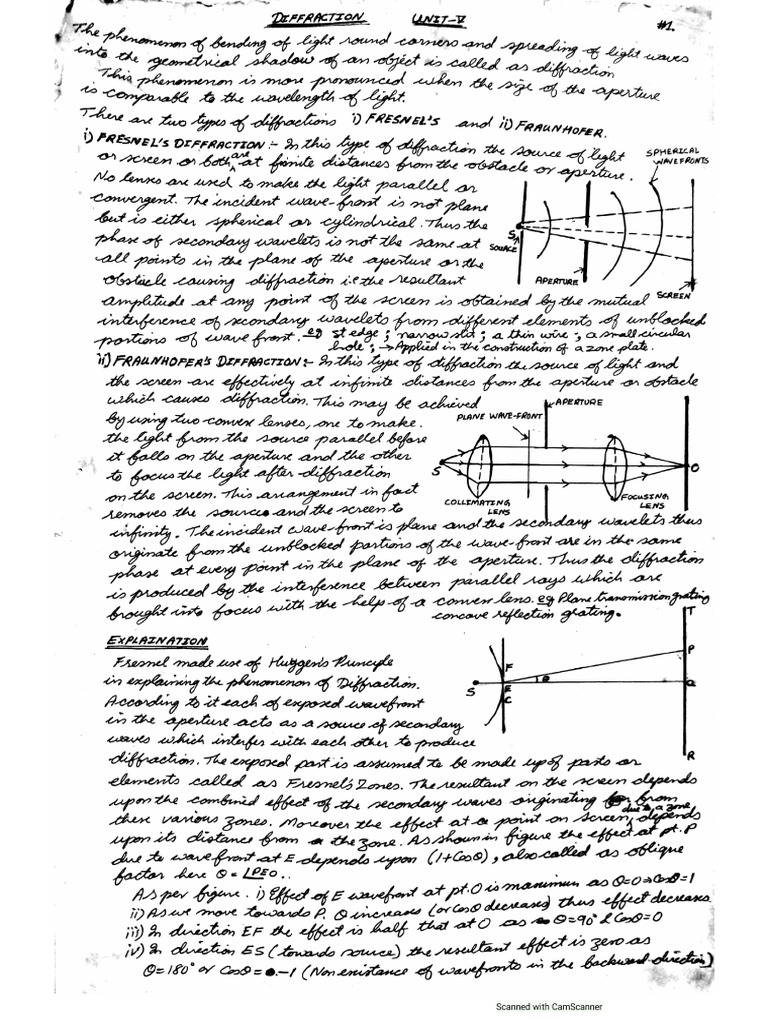 DIFFRACTION UNIT-V #1.
The phenomenon of bending of light round corners and spreading of light waves
into the geometrical shadow of an object is called as diffraction
This phenomenon is more pronounced when the size of the aperture
is comparable to the wavelength of light.
There are two types of diffractions i) FRESNEL'S and ii) FRAUNHOFER.
i) FRESNEL'S DIFFRACTION:- In this type of diffraction the source of light
or screen or both are at finite distances from the obstacle or aperture.
No lenses are used to make the light parallel or
convergent. The incident wave-front is not plane
but is either spherical or cylindrical. Thus the
phase of secondary wavelets is not the same at
all points in the plane of the aperture or the
obstacle causing diffraction i.e the resultant
amplitude at any point of the screen is obtained by the mutual
interference of secondary wavelets from different elements of unblocked
portions of wave front. eg st edge; narrow slit; a thin wire; a small circular
hole; → Applied in the construction of a zone plate.
SPHERICAL
WAVEFRONTS
S
SOURCE
APERTURE
SCREEN
ii) FRAUNHOFER'S DIFFRACTION:- In this type of diffraction the source of light and
the screen are effectively at infinite distances from the aperture or obstacle
which causes diffraction. This may be achieved
by using two convex lenses, one to make.
the light from the source parallel before
it falls on the aperture and the other
to focus the light after diffraction
on the screen. This arrangement in fact
removes the source and the screen to
infinity. The incident wave-front is plane and the secondary wavelets thus
originate from the unblocked portions of the wave-front are in the same
phase at every point in the plane of the aperture. Thus the diffraction
is produced by the interference between parallel rays which are
brought into focus with the help of a convex lens. eg Plane transmission grating
concave reflection grating.
APERTURE
PLANE WAVE-FRONT
S
O
COLLIMATING
LENS
FOCUSING
LENS
EXPLAINATION
Fresnel made use of Huygen's Principle
in explaining the phenomenon of Diffraction.
According to it each of exposed wavefront
in the aperture acts as a source of secondary
waves which interfer with each other to produce
diffraction. The exposed part is assumed to be made up of parts or
elements called as Fresnel's Zones. The resultant on the screen depends
upon the combined effect of the secondary waves originating from
these various zones. Moreover the effect at a point on screen, due to a zone, depends
upon its distance from the zone. As shown in figure the effect at pt. P
due to wavefront at E depends upon (1+Cosθ), also called as oblique
factor here θ = ∠PEO..
T
P
F
S
E
θ
Q
C
R
As per figure. i) Effect of E wavefront at pt. O is maximum as θ=0⇒Cosθ=1
ii) As we move towards P, θ increases (or Cosθ decreases) thus effect decreases
iii) In direction EF the effect is half that at O as θ=90° & Cosθ=0
iv) In direction ES (towards source) the resultant effect is zero as
θ=180° or Cosθ=-1 (Non existance of wavefronts in the backward direction)
Scanned with CamScanner